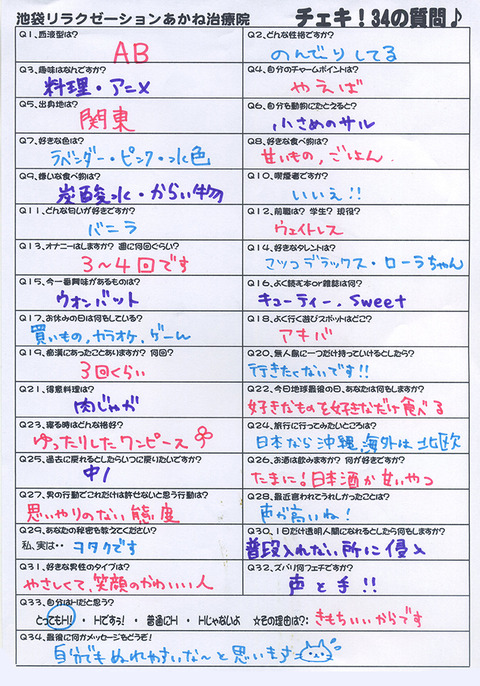 池袋リラクゼーションあかね治療院 チェキ！34の質問♪
Q1、血液型は?
AB
Q2、どんな性格ですか?
のんびりしてる
Q3、趣味はなんですか?
料理・アニメ
Q4、自分のチャームポイントは?
やえば
Q5、出身地は?
関東
Q6、自分を動物にたとえると?
小さめのサル
Q7、好きな色は?
ラベンダー・ピンク・水色
Q8、好きな食べ物は?
甘いもの、ごはん
Q9、嫌いな食べ物は?
炭酸水・からい物
Q10、喫煙者ですか?
いいえ!!
Q11、どんな匂いが好きですか?
バニラ
Q12、前職は? 学生? 現役?
ウェイトレス
Q13、オナニーはしますか? 週に何回ぐらい?
3〜4回です
Q14、好きなタレントは?
マツコデラックス・ローラちゃん
Q15、今一番興味があるものは?
ウォンバット
Q16、よく読む本or雑誌は何?
キューティー、sweet
Q17、お休みの日は何をしている?
買いもの、カラオケ、ゲーム
Q18、よく行く遊びスポットはどこ?
アキバ
Q19、痴漢にあったことありますか? 何回?
3回くらい
Q20、無人島に一つだけ持っていけるとしたら?
行きたくないです!!
Q21、得意料理は?
肉じゃが
Q22、今日地球最後の日、あなたは何をしますか?
好きなものを好きなだけ食べる
Q23、寝る時はどんな格好?
ゆったりしたワンピース
Q24、旅行に行ってみたいところは?
日本なら沖縄、海外は北欧
Q25、過去に戻れるとしたらいつに戻りたいですか?
中1
Q26、お酒は飲みますか? 何が好きですか?
たまに!日本酒か甘いやつ
Q27、男の行動でこれだけは許せないと思う行動は?
思いやりのない態度
Q28、最近言われてうれしかったことは?
声が高いね!
Q29、あなたの秘密を教えてください?
私、実は・・ ヲタクです
Q30、1日だけ透明人間になれるとしたら何をしますか?
普段入れない所に侵入
Q31、好きな男性のタイプは?
やさしくて、笑顔のかわいい人
Q32、ズバリ何フェチですか?
声と手!!
Q33、自分はHだと思う?
とってもH! ・ Hですぅ! ・ 普通にH ・ Hじゃないよ その理由は?: きもちいいからです
Q34、最後に何かメッセージをどうぞ!
自分でもぬれやすいな〜と思います